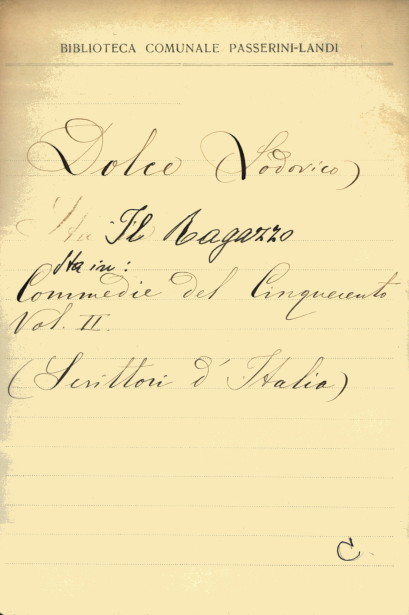 BIBLIOTECA COMUNALE PASSERINI-LANDI
Dolce (Lodovico)
Sta Il Ragazzo
Sta in:
Commedie del Cinquecento
Vol. II.
(Scrittori d'Italia)
C